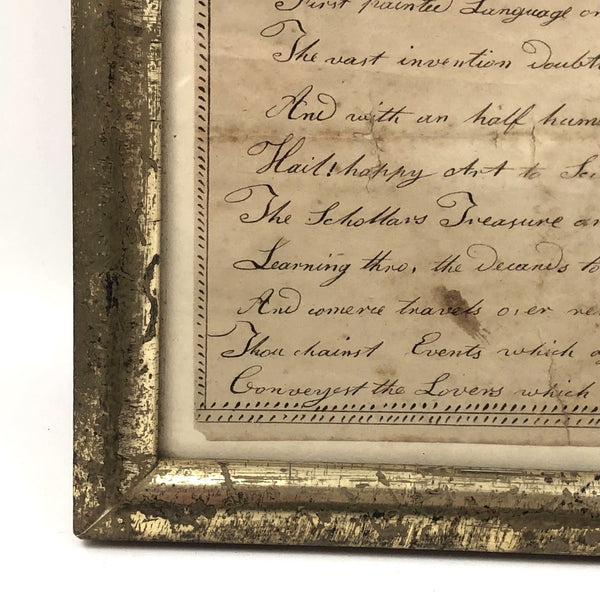 First painted Language on
The vast invention doubt
And with an half hum
Hail! happy Art to Sci
The Schollars Treasure an
Learning thro, the decands to
And comerce travels o,er re
Thou chainst Events which
Conveyest the Lovers which